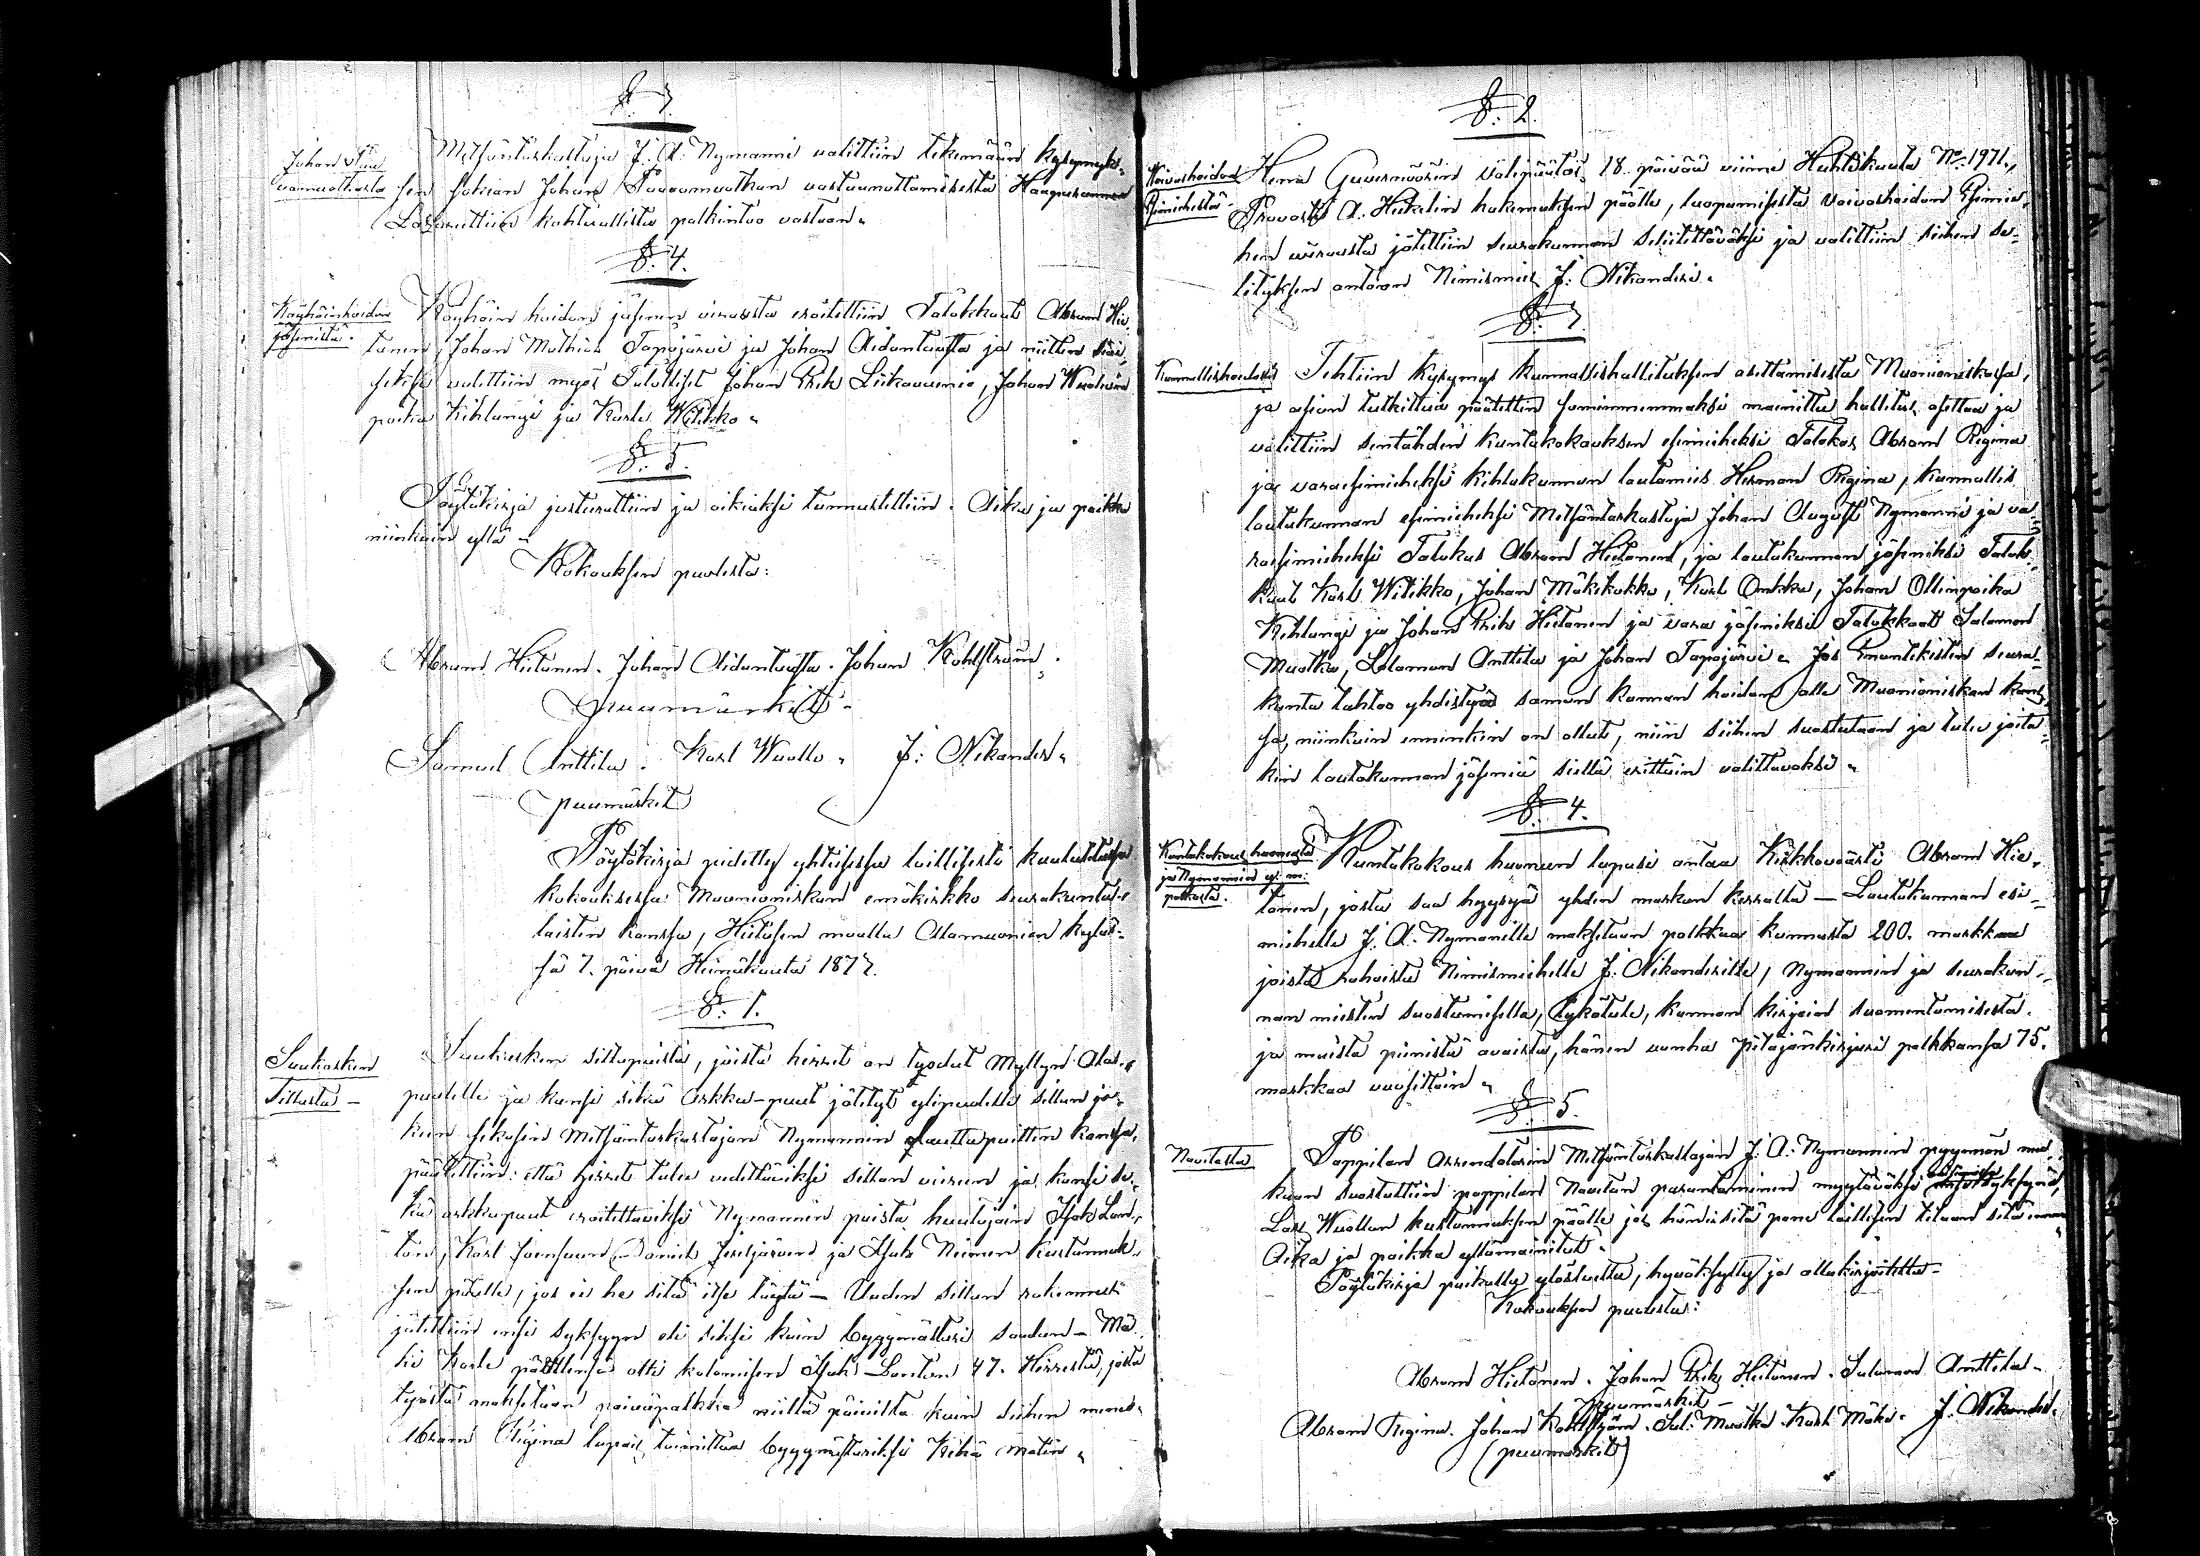 §. 3.
Johan Paa
vomuotkasta
Metsäntarkastaja J. A. Nymanni valittiin tekemään kysymyk-
sen Johan Paavomuotkan vastuunottamisesta Haaparannan
Lazarettiin kohtuullista palkintoa vastaan.
§. 4.
Köyhäinhoidon
jäsenistä.
Köyhäin hoidon jäsenen virasta eroitettiin Talokkaat Abram Hie-
tanen, Johan Mathias Tapojärvi ja Johan Aidantausta ja niitten siai-
seksi valittiin myös Talolliset Johan Erik Liikavainio, Johan
poika Kihlangi ja Karle Wilikko.
§. 5.
Pöytäkirja justerattiin ja oikiaksi tunnustettiin. Aika ja paikka
niinkuin yllä.
Kokouksen puolesta:
Abram Hietanen. Johan Aidantausta. Johan Kohlström.
puumärkit.
Samuel Anttila. Karl Wuollo. J: Nikander.
puumärkit
Pöytäkirja pidetty yhteisessä laillisesti kuulutetussa
kokouksessa Muonioniskan emäkirkko seurakunta-
laisten kanssa, Hietasen maalla Alamuonion kyläs-
sä 7. päivä Heinäkuuta 1877.
§. 1.
Sillasta
sillapaista, joista hirret on tyodut Myllyn Alas-
puolelle ja kansi sekä Arkku-puut jätetyt ylipuolelle sillan jo-
kun sekasin Metsäntarkastajan Nymannin lautta puitten kanssa,
päätettiin: että hirret tulee vedettäviksi sillan viereen ja kansi se-
kä arkkupuut eroitettaviksi Nymannin puista huutajain Isak Lan-
ton, Karl Joensuun Daniel Jerisjärven ja Isak Niemen kustannuk-
sen päälle, jos ei he sitä itse täytä — Uuden sillan rakennus
jätettiin ensi syksyyn eli siksi kuin byggmästari saadan — Mä
ki Karle päällensä otti kolomisen Isak Lanton 47. Hirrestä, josta
työstä maksetaan päiväpalkka niiltä päiviltä kuin siihen menee.
Abram Rigina lupais toimittaa byggmästariksi Kekä Matin.
§. 2.
Vaivashoidon
Esimiehestä.
Herra Guvernöörin välipäätös 18. päivää viime Huhtikuuta No. 1971,
Provasti A. Heikelin hakemuksen päälle, luopumisesta Vaivashoidon Esimie-
hen virasta jätettiin seurakunnan selitettäväksi ja valittiin siihen se-
lityksen antaan Nimismies J: Nikanderi.
§. 3.
Kunnallishoidosta
Tehtiin kysymys kunnallishallituksen asettamisesta Muonioniskassa,
ja asian tutkittua päätettiin sominnmmaksi mainittu hallitus asettaa ja
valittiin sentähden kuntakokouksen esimieheksi Talokas Abram Rigina
ja varaesimieheksi Kihlakunnan lautamies Herman Rigina, kunnallis
lautakunnan esimieheksi Metsäntarkastaja Johan August Nymanni ja va-
raesimieheksi Talokas Abram Hietanen, ja lautakunnan jäseniksi Talok-
kaat Karl Wilikko, Johan Mäkikokko, Karl Onkka, Johan Ollinpoika
Kihlangi ja Johan Erik Hietanen ja vara jäseniksi Talokkaat Salomon
Muotka, Salomon Anttila ja Johan Tapojärvi. Jos Enontekisten seura-
kunta tahtoo yhdistyä saman kunnan hoidon alle Muonioniskan kans-
sa, niinkuin ennenkin on ollut, niin siihen suostutaan ja tulee joita-
kin lautakunnan jäseniä sieltä erittäin valittavaksi.
§. 4.
Kuntakokous huoneesta
ja Nymannin
palkasta.
Kuntakokous huoneen lupasi antaa Kirkkoväärti Abram Hie-
tanen, josta saa hyyryä yhden markan kerralta — Lautakunnan esi-
miehelle J. A. Nymanille maksetaan palkkaa kunnasta 200. markkaa
joista rahoista Nimismiehelle J: Nikanderille, Nymannin ja seurakun-
nan miesten suostumisella, lykätään, kunnan kirjain suomentamisesta
ja muista pienistä avuista, hänen vanha Pitäjänkirjuri palkkansa 75.
markkaa vuosittain.
§. 5.
Navetasta
Pappilan Arrendatorin Metsäntarkastajan J. A. Nymannin pyynnön mu-
kaan suostuttiin pappilan Navetan parantaminen myytäväksi syksynä,
Lars Wuollon kustannuksen päälle jos hän ei sitä pane laillisen tilaan sitä ennen
Aika ja paikka yllämainitut.
Pöytäkirja paikalla ylösluettu, hyväksytty ja allakirjoitettu.
Kokouksen puolesta:
Abram Hietanen. Johan Erik Hietanen. Salomon Anttila.
puumärkit
Abram Rigina. Johan Kohlström. Sal: Muotka Karl Mäki. J: Nikander.
(puumärkit)